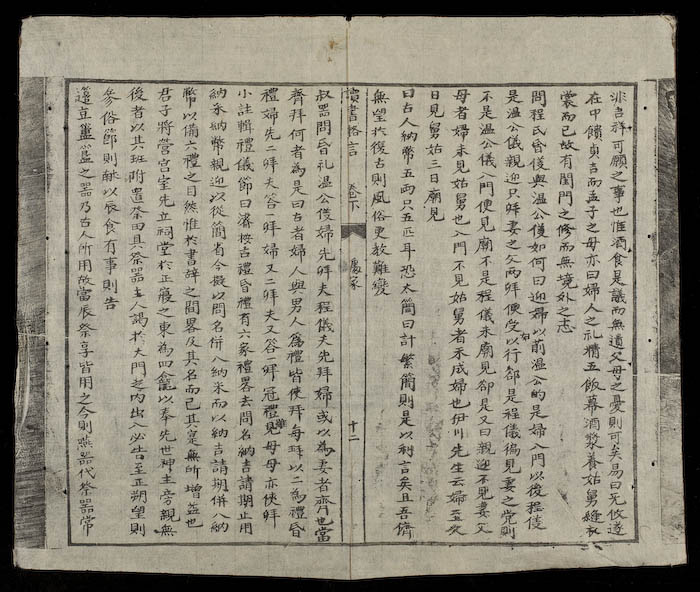 非吉祥可願之事也惟酒食是議而無遺父母之憂則可矣易曰无攸遂
在中饋貞吉而孟子之母亦曰婦人之礼精五飯冪酒漿養姑舅縫衣
裳而已故有閨門之修而無境外之志
問程氏昏儀與溫公儀如何曰迎婦以前溫公的是婦入門以後程儀
是溫公儀親迎只拜妻之父兩拜便受以行却是程儀徧見妻之党則
不是溫公儀入門便見廟不是程儀未廟見却是又曰親迎不見妻父
母者婦未見姑舅也入門不見姑舅者未成婦也伊川先生云婦至次
日見舅姑三日廟見
曰古人納幣五兩只五匹耳恐太簡曰計繁簡則是以利言矣且吾儕
無望於復古則風俗更教難變
讀書格言 卷下 處家 十二
叔器問昏礼溫公儀婦先拜夫程儀夫先拜婦或以為妻者齊也當
齊拜何者為是曰古者婦人與男人為禮皆俠拜每拜以二為禮昏
禮婦先二拜夫答一拜婦又二拜夫又答一拜冠禮雖見母母亦俠拜
小註輯禮儀節曰濬按古禮昏禮有六家禮畧去問名納吉請期止用
納采納幣親迎以從簡省今擬以問名併入納采而以納吉請期併入納
幣以備六禮之目然惟於書辞之間畧及其名而已其寔無所增益也
君子將營宮室先立祠堂於正寢之東為四龕以奉先世神主旁親無
後者以其班附置祭田具祭器主人謁於大門之内出入必告至正朔望則
參俗節則献以辰食有事則告
籩豆簠簋之器乃古人所用故當辰祭享皆用之今則燕器代祭器常